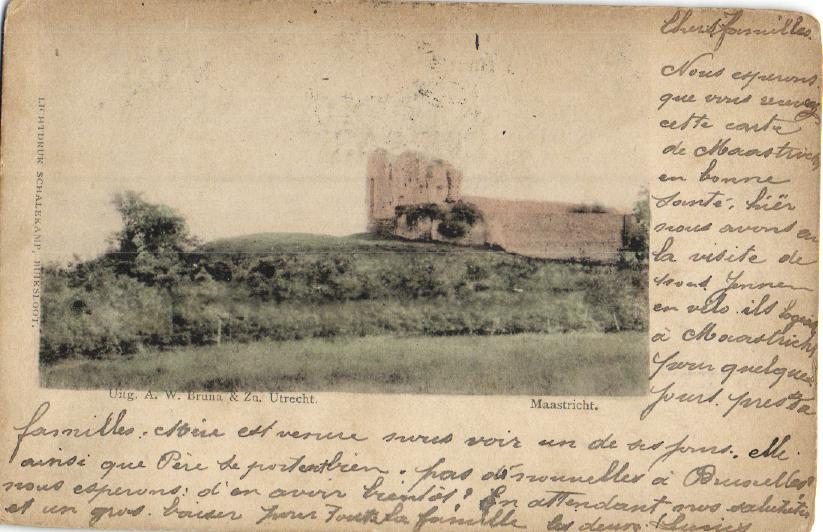 LICHTDRUK SCHALEKAMP, BUIKSLOOT.
Uitg. A. W. Bruna & Zn. Utrecht.
Maastricht.
Chers familles.
Nous esperons
que vous recevez
cette carte
de Maastricht
en bonne
santé. hiër
nous avons eu
la visite de
en velo. ils
à Maastricht
pour quelques
jours.
familles. Mère est venue nous voir un de ses jours. elle
ainsi que Père se portent bien. pas de nouvelles à Bruxelles
nous esperons d'en avoir bientôt? En attendant nos
et un gros baiser pour toute la famille les deux.